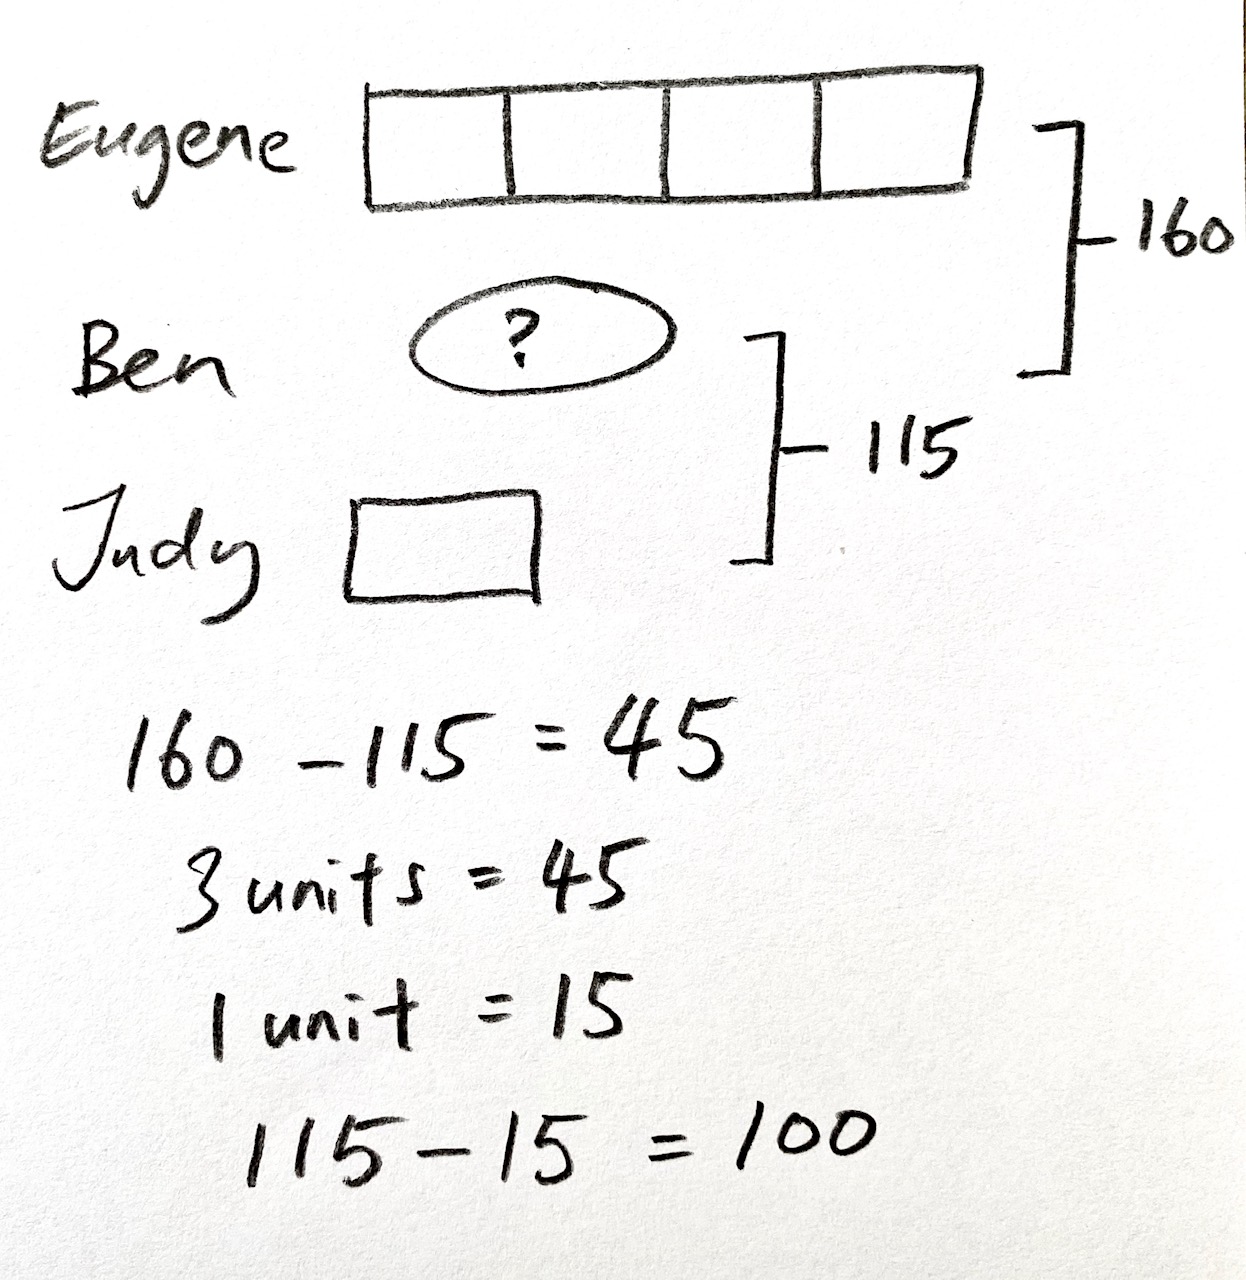 Eugene
160
Ben ?
115
Judy
160 - 115 = 45
3 units = 45
1 unit = 15
115 - 15 = 100